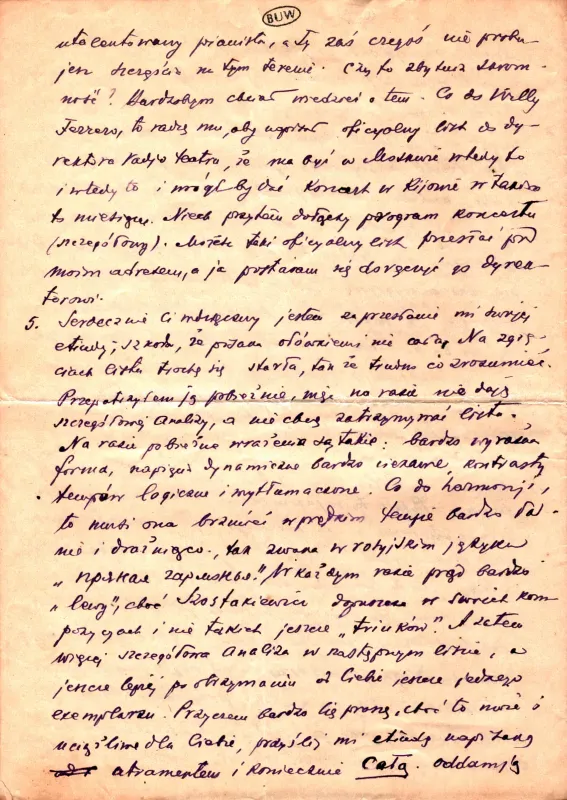 BUW
utalentowany pianista, a Ty zaś czegoś nie próbu-
jesz szczęścia na tym terenie. Czy to zbytnia skrom-
ność? Bardzobym chciał wiedzieć o tem. Co do Willy
Ferrero, to radzę mu, aby napisał oficyalny list do dy-
rektora Radjo Teatru, że ma być w Moskwie wtedy to
i wtedy to i mógłby dać koncert w Kijowie w takim
to miesiącu. Niech przytem dołączy program koncertu
(szczegółowy). Może taki oficyalny list przesłać pod
moim adresem, a ja postaram się doręczyć go dyrek-
torowi.
5. Serdecznie Ci wdzięczny jestem za przesłanie mi swojej
etiudy; szkoda, że pisana ołówkiem i nie cała. Na zgię-
ciach listu trochę się starła, tak że trudno co zrozumieć.
Przepatrzyłem ją pobieżnie, więc na razie nie daję
szczegółowej analizy, a nie chcę zatrzymywać listu.
Na razie pobieżne wrażenia są takie: bardzo wyraźna
forma, napięcie dynamiczne bardzo ciekawe, kontrasty
tempów logiczne i wytłamaczone. Co do harmonji,
to musi ona brzmieć w prędkim tempie bardzo
i drażniąco, tak zwana w rosyjskim języku
„пряная гармонья". W każdym razie prąd bardzo
„lewy", choć Szostakiewicz dopuszcza w swoich kom-
pozycjach i nie takich jeszcze „trinków". A zatem
więcej szczegółowa analiza w następnym liście, a
jeszcze lepiej po otrzymaniu od Ciebie jeszcze jednego
exemplarza. Przyczem bardzo Cię proszę, choć to może i
uciążliwe dla Ciebie, przyślij mi etiudę napisaną
atramentem i koniecznie całą. Oddam ją